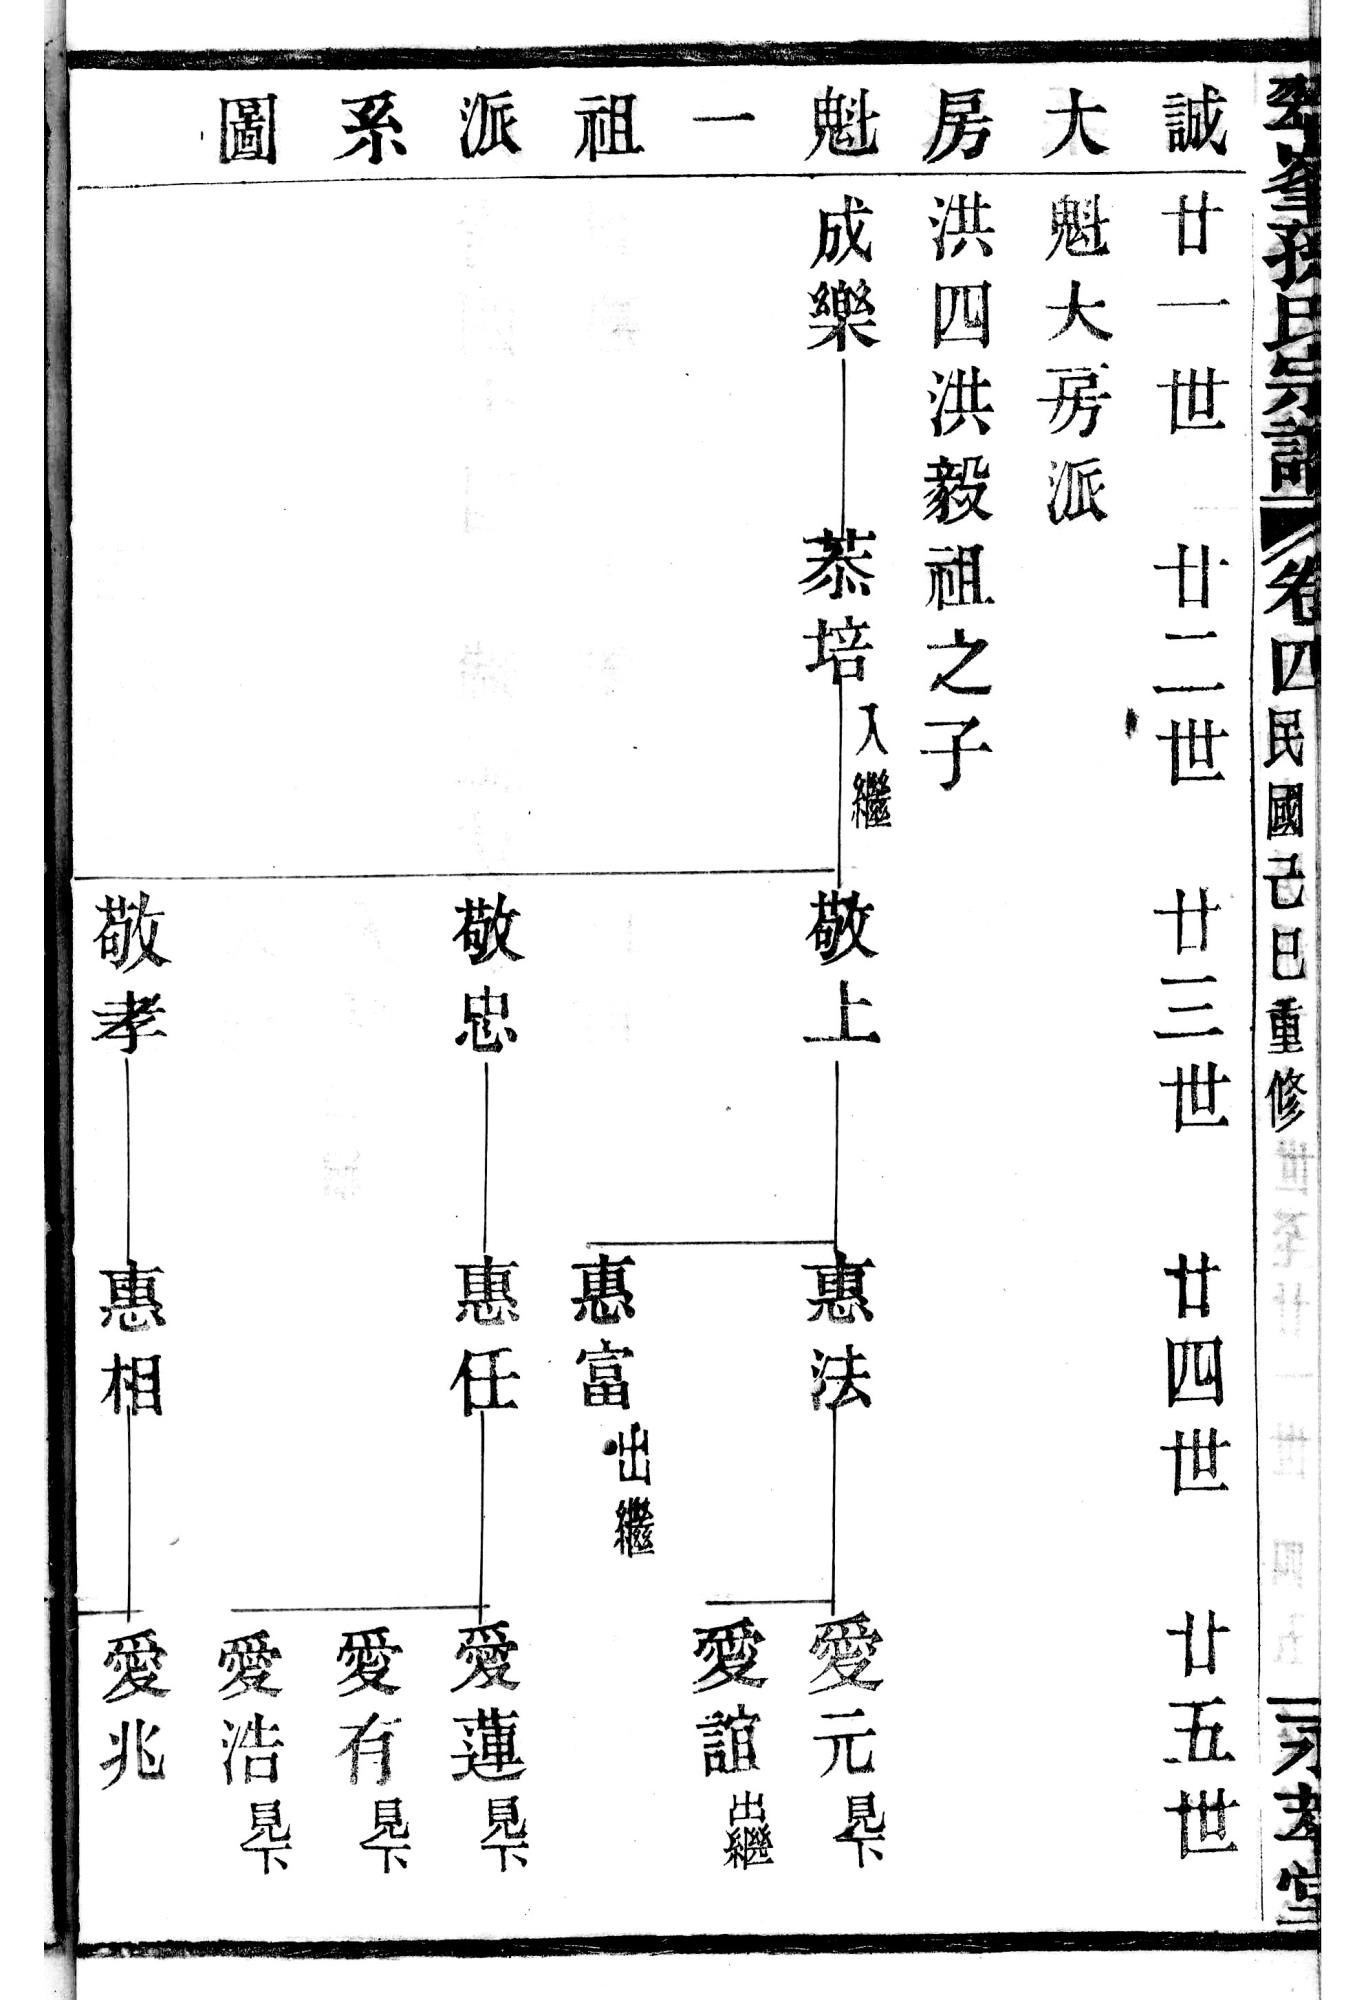 孫氏宗譜 卷四 民國己巳重修
誠大房魁一祖派系圖
廿一世 廿二世 廿三世 廿四世 廿五世
魁大房派
洪四洪毅祖之子
成樂 恭培 入繼 敬上 惠法 愛元 見下
愛誼 出繼
惠富 出繼
敬忠 惠任 愛蓮 見下
愛有 見下
愛浩 見下
敬孝 惠相 愛兆